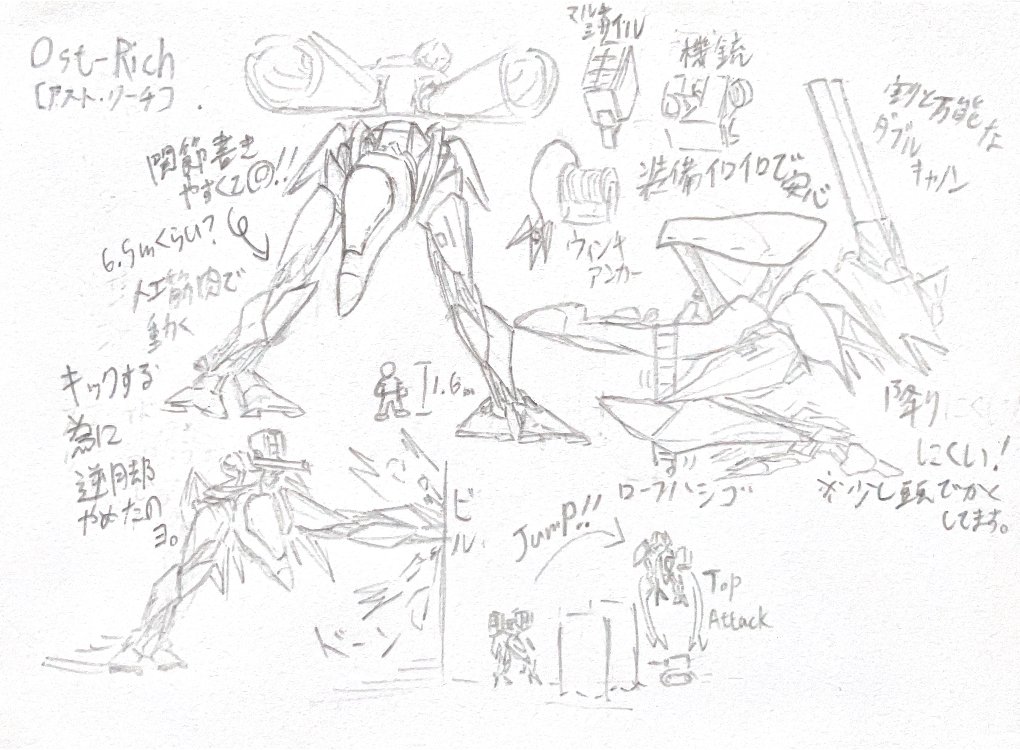 Ost-Rich
[アスト・リーチ]
マルチ
ミサイル
機銃
割と万能な
ダブル
キャノン
関節書き
やすくて◎!!
装備イロイロで安心
6.5mくらい?
人工筋肉で
動く
ウィンチ
アンカー
キックする
為に
逆脚
やめたの
ヨ。
1.6m
降り
にくい!
ロープハシゴ
※少し頭でかく
してます。
ビル
Jump!!
Top
Attack